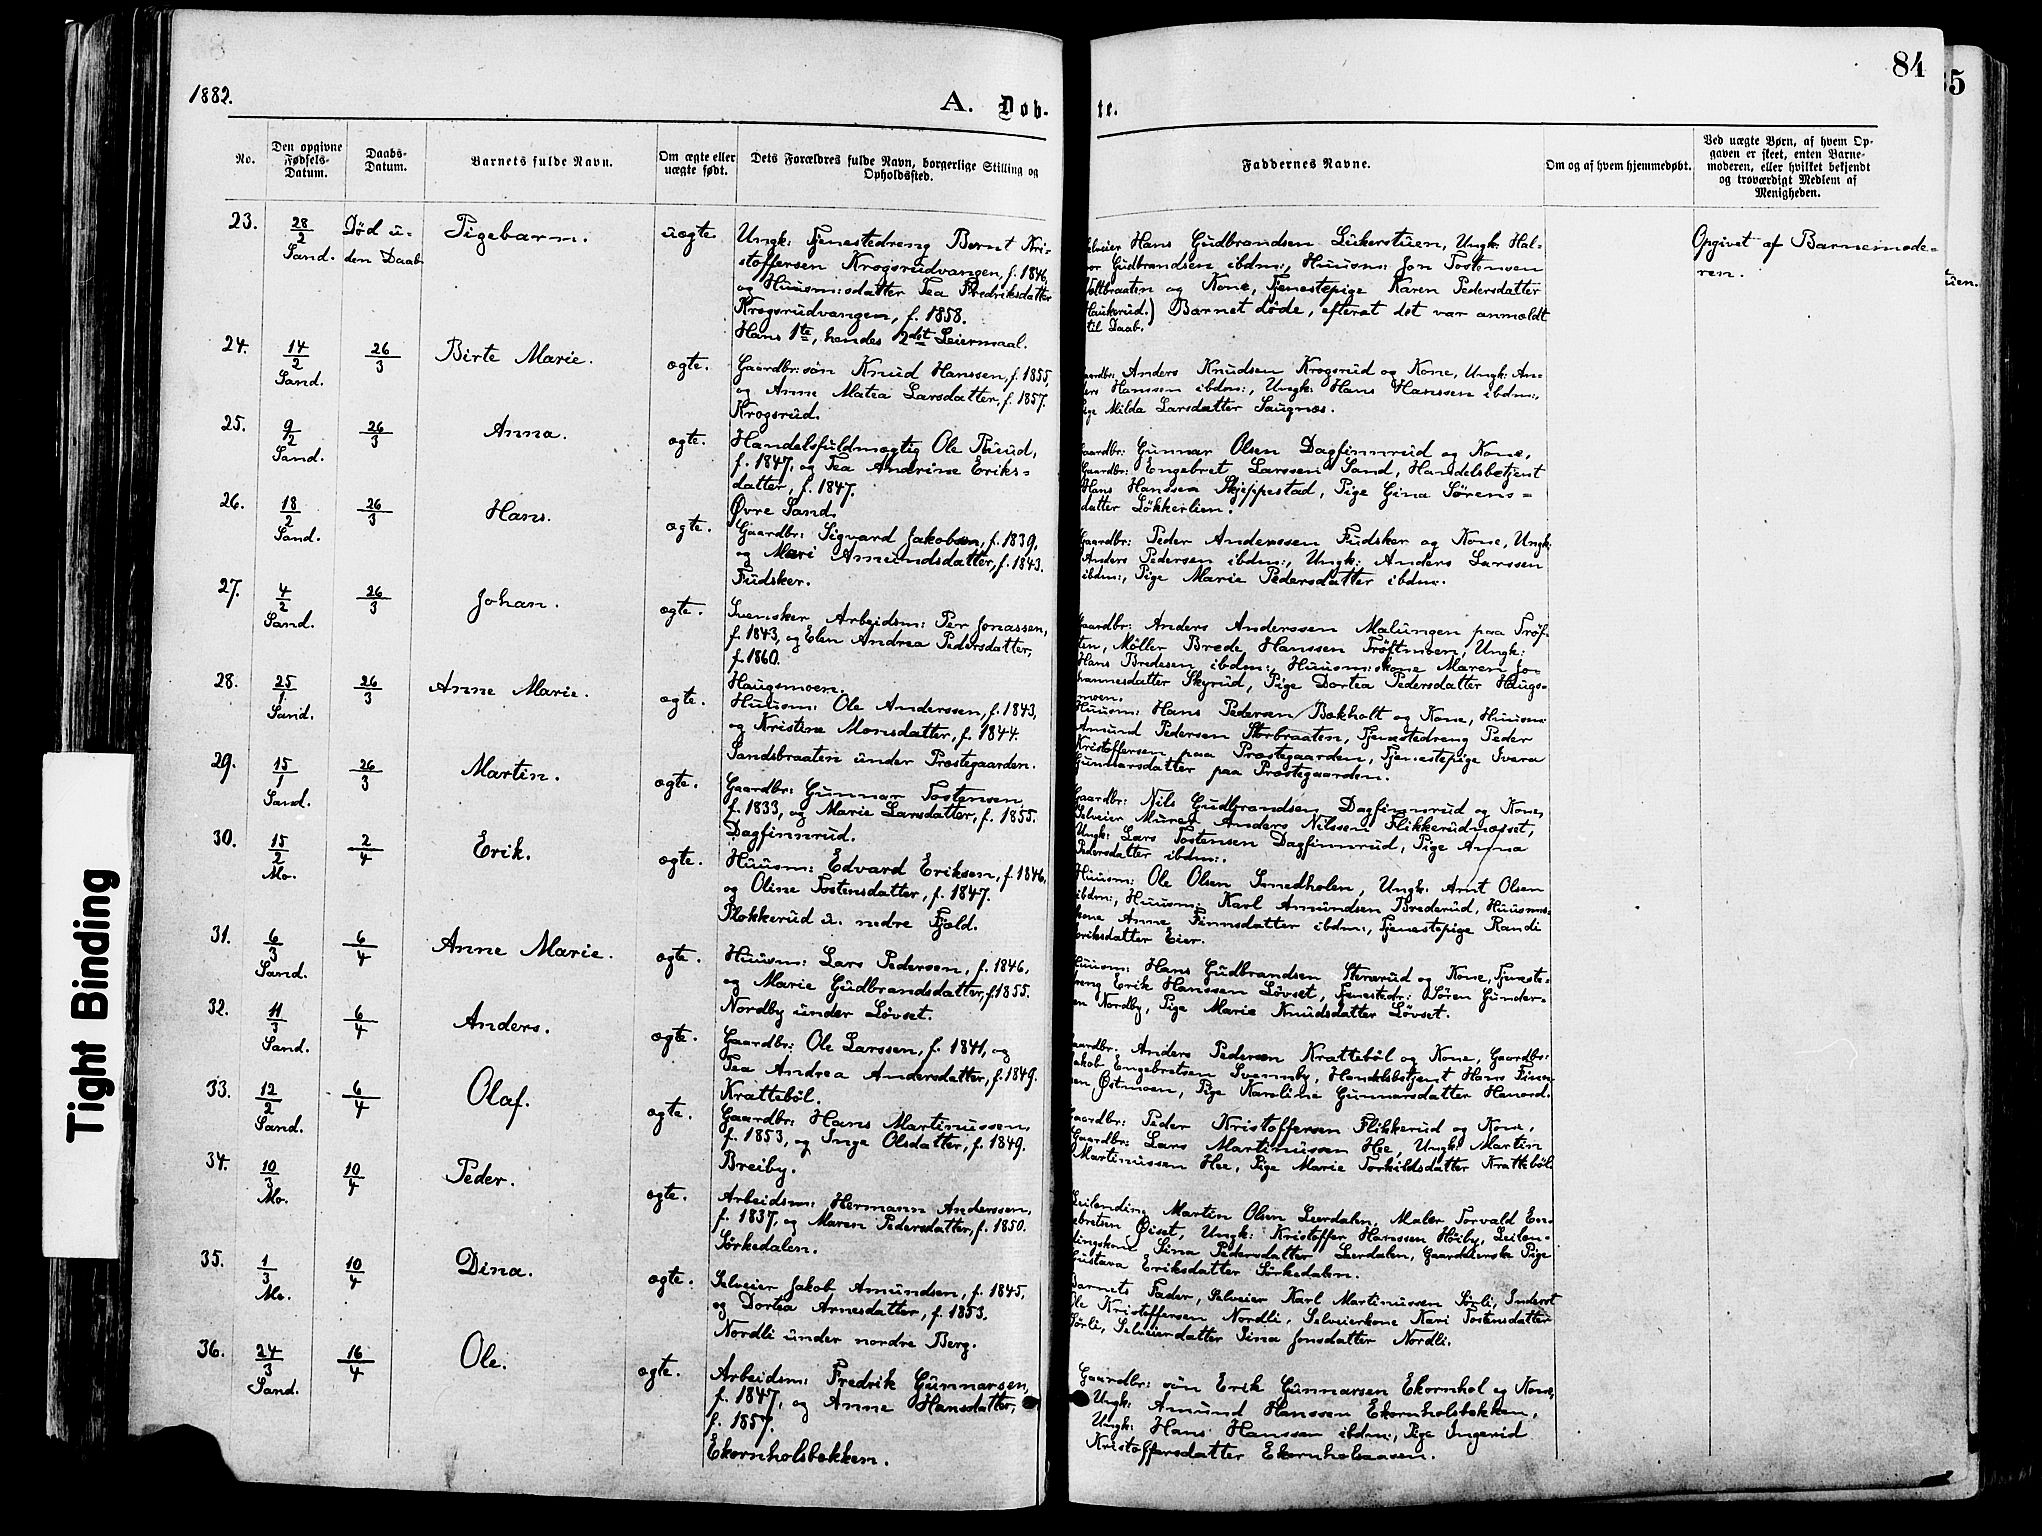 84
35
1882.
A. Døb-
te.
No.
Den opgivne Fødsels-Datum.
Daabs-Datum.
Barnets fulde Navn.
Om ægte eller uægte født.
Dets Forældres fulde Navn, borgerlige Stilling og Opholdssted.
Faddernes Navne.
Om og af hvem hjemmedøbt.
Ved uægte Børn, af hvem Op-
gaven er skeet, enten Barne-
moderen, eller hvilket bekjendt
og troværdigt Medlem af
Menigheden.
23.
28/2 Sand.
Død u-
den Daab
Pigebarn.
uægte
Ungk: Tjenestedreng Bernt Kri-
stoffersen Krogsrudvangen, f. 1846,
og Huusm:sdatter Tea Fredriksdatter
Krogsrudvangen, f. 1858.
Hans 1te, hendes 2det Leiermaal.
Selveier Hans Gudbrandsen Lükerstuen, Ungk: Hal-
vor Gudbrandsen ibdm:, Huusm: Jon Tostensen
Holtbraaten og Kone, Tjenestepige Karen Pedersdatter
Haukerud.) Barnet døde, efterat det var anmeldt
til Daab.
Opgivet af Barnemode-
ren.
tuen.
24.
14/2 Sand.
26/3
Birte Marie.
ægte.
Gaardbr: søn Knud Hanssen, f. 1855,
og Anne Matea Larsdatter, f. 1857.
Krogsrud.
Gaardbr: Anders Knudsen Krogsrud og Kone, Ungk: An-
ders Hanssen ibdm:, Ungk: Hans Hanssen ibdm:,
Pige Milda Larsdatter Saugnæs.
25.
9/2 Sand.
26/3
Anna.
ægte.
Handelsfuldmægtig Ole Ruud,
f. 1847, og Tea Andrine Eriks-
datter, f. 1847.
Øvre Sand.
Gaardbr: Gunnar Olsen Dagfinnrud og Kone,
Gaardbr: Engebret Larssen Sand, Handelsbetjent
Hans Hanssen Skjeppestad, Pige Gina Sørens-
datter Løkkerlien.
26.
18/2 Sand.
26/3
Hans.
ægte.
Gaardbr: Sigvard Jakobsen, f. 1839,
og Mari Amundsdatter, f. 1843.
Fudsker.
Gaardbr: Peder Anderssen Fudsker og Kone, Ungk:
Anders Pedersen ibdm:, Ungk: Anders Larssen
ibdm:, Pige Marie Pedersdatter ibdm:.
27.
4/2 Sand.
26/3
Johan.
ægte.
Svensker Arbeidsm: Per Jonassen,
f. 1843, og Elen Andrea Pedersdatter,
f. 1860.
Haugsmoen.
Gaardbr: Anders Anderssen Malungen paa Trøf-
ten, Møller Brede Hanssen Trøftmoen, Ungk:
Hans Bredesen ibdm:, Huusm:skone Maren Jo-
hannesdatter Skyrud, Pige Dortea Pedersdatter Haugs-
moen.
28.
25/1 Sand.
26/3
Anne Marie.
ægte.
Huusm: Ole Anderssen, f. 1843,
og Kristine Monsdatter, f. 1844.
Sandsbraaten under Præstegaarden.
Huusm: Hans Pedersen Bokholt og Kone, Huusm:
Amund Pedersen Storbraaten, Tjenestedreng Peder
Kristoffersen paa Præstegaarden, Tjenestepige Ivera
Gundersdatter paa Præstegaarden.
29.
15/1 Sand.
26/3
Martin.
ægte.
Gaardbr: Gunnar Tostensen,
f. 1833, og Marie Larsdatter, f. 1855.
Dagfinnrud.
Gaardbr: Nils Gudbrandsen Dagfinnrud og Kone,
Selveier Murer Anders Nilssen Flikkerudnæsset,
Ungk: Lars Tostensen Dagfinnrud, Pige Anna
Pedersdatter ibdm:.
30.
15/2 Mo.
2/4
Erik.
ægte.
Huusm: Edvard Eriksen, f. 1846,
og Oline Tostensdatter, f. 1847.
Plokkerud u. nedre Fjeld.
Huusm: Ole Olsen Smedholen, Ungk: Arnt Olsen
ibdm:, Huusm: Karl Amundsen Brederud, Huusms-
kone Anne Finnsdatter ibdm:, Tjenestepige Randi
Eriksdatter Eier.
31.
6/3 Sand.
6/4
Anne Marie.
ægte.
Huusm: Lars Pedersen, f. 1846,
og Marie Gudbrandsdatter, f. 1855.
Nordby under Løvset.
Huusm: Hans Gudbrandsen Stenerud og Kone, Tjeneste-
dreng Erik Hanssen Løvset, Tjenestedr: Søren Gunder-
sen Nordby, Pige Marie Knudsdatter Løvset.
32.
11/3 Sand.
6/4
Anders.
ægte.
Gaardbr: Ole Larssen, f. 1841, og
Tea Andrea Andersdatter, f. 1849.
Krattebøl.
Gaardbr: Anders Pedersen Krattebøl og Kone, Gaardbr:
Jakob Engebretsen Svennby, Handelsbetjent Hans Finn-
sen Østmoen, Pige Karoline Gunnarsdatter Henord.
33.
12/2 Sand.
6/4
Olaf.
ægte.
Gaardbr: Hans Martinussen,
f. 1853, og Inge Olsdatter, f. 1849.
Breiby.
Gaardbr: Peder Kristoffersen Flikkerud og Kone,
Gaardbr: Lars Martinussen Hee, Ungk: Martin
Martinussen Hee, Pige Marie Torkildsdatter Krattebøl.
34.
10/3 Mo.
10/4
Peder.
ægte.
Arbeidsm: Hermann Anderssen,
f. 1837, og Maren Pedersdatter, f. 1850.
Sørkedalen.
Leilending Martin Olsen Leerdalen, Maler Torvald En-
gebretsen Øiset, Ungk: Kristoffer Hanssen Høiby, Leilen-
dingskone Sina Pedersdatter Leerdalen, Gaardeierske Pige
Gustava Eriksdatter Sørkedalen.
35.
1/3 Mo.
10/4
Dina.
ægte.
Selveier Jakob Amundsen, f. 1845,
og Dortea Arnesdatter, f. 1853.
Nordli under nordre Berg.
Barnets Fader, Selveier Karl Martinussen Sørli, Inderst
Ole Kristoffersen Nordli, Selveierkone Kari Tostensdatter
Sørli, Selveierdatter Sina Jonsdatter Nordli.
36.
24/3 Sand.
16/4
Ole.
ægte.
Arbeidsm: Fredrik Gunnarsen,
f. 1847, og Anne Hansdatter,
f. 1857.
Ekornholsbekken.
Gaardbr: søn Erik Gunnarsen Ekornhol og Kone,
Ungk: Amund Hanssen Ekornholsbekken,
Ungk: Hans Hanssen ibdm:, Pige Ingerid
Kristoffersdatter Ekornholsaasen.
Tight Binding